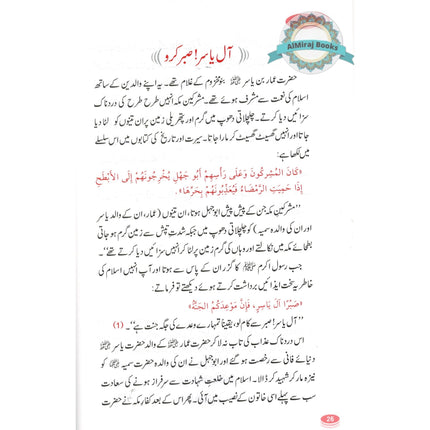 AlMiraj Books
آل یاسر! صبر کرو
حضرت عمار بن یاسر رضی اللہ عنہ بنو مخزوم کے غلام تھے۔ یہ اپنے والدین کے ساتھ
اسلام کی نعمت سے مشرف ہوئے تھے۔ مشرکین مکہ انہیں طرح طرح کی دردناک
سزائیں دیا کرتے۔ چلچلاتی دھوپ میں گرم اور پتھریلی زمین پر ان تینوں کو لٹا دیا
جاتا اور انہیں گھسیٹ گھسیٹ کر مارا جاتا۔ سیرت اور تاریخ کی کتابوں میں اس سلسلے
میں لکھا ہے:
«كَانَ الْمُشْرِكُونَ وَعَلَى رَأْسِهِمْ أَبُو جَهْلٍ يُخْرِجُونَهُمْ إِلَى الْأَبْطَحِ
إِذَا حَمِيَتِ الرَّمْضَاءُ فَيُعَذِّبُونَهُمْ بِحَرِّهَا».
’’مشرکین مکہ جن کے پیش پیش ابوجہل ہوتا، ان تینوں (عمار، ان کے والد یاسر
اور ان کی والدہ سمیہ) کو چلچلاتی دھوپ میں جبکہ شدتِ تپش سے زمین گرم ہو جاتی
بطحائے مکہ میں نکالتے اور وہاں کی گرم زمین پر لٹا کر انہیں سزائیں دیا کرتے تھے‘‘۔
جب رسول اکرم ﷺ کا گزر ان کے پاس سے ہوتا اور آپ انہیں اسلام کی
خاطر یہ سخت ایذائیں برداشت کرتے ہوئے دیکھتے تو فرماتے:
«صَبْرًا آلَ يَاسِرٍ، فَإِنَّ مَوْعِدَكُمُ الْجَنَّةُ»
’’آل یاسر! صبر سے کام لو، یقیناً تمہارے وعدے کی جگہ جنت ہے‘‘۔ (1)
اس دردناک عذاب کی تاب نہ لا کر حضرت عمار رضی اللہ عنہ کے والد حضرت یاسر رضی اللہ عنہ
دنیائے فانی سے رخصت ہو گئے اور ابوجہل نے ان کی والدہ حضرت سمیہ رضی اللہ عنہا کو
نیزہ مار کر شہید کر ڈالا۔ اسلام میں خلعتِ شہادت سے سرفراز ہونے کی سعادت
سب سے پہلے اسی خاتون کے نصیب میں آئی۔ پھر اس کے بعد کفار مکہ نے حضرت
26